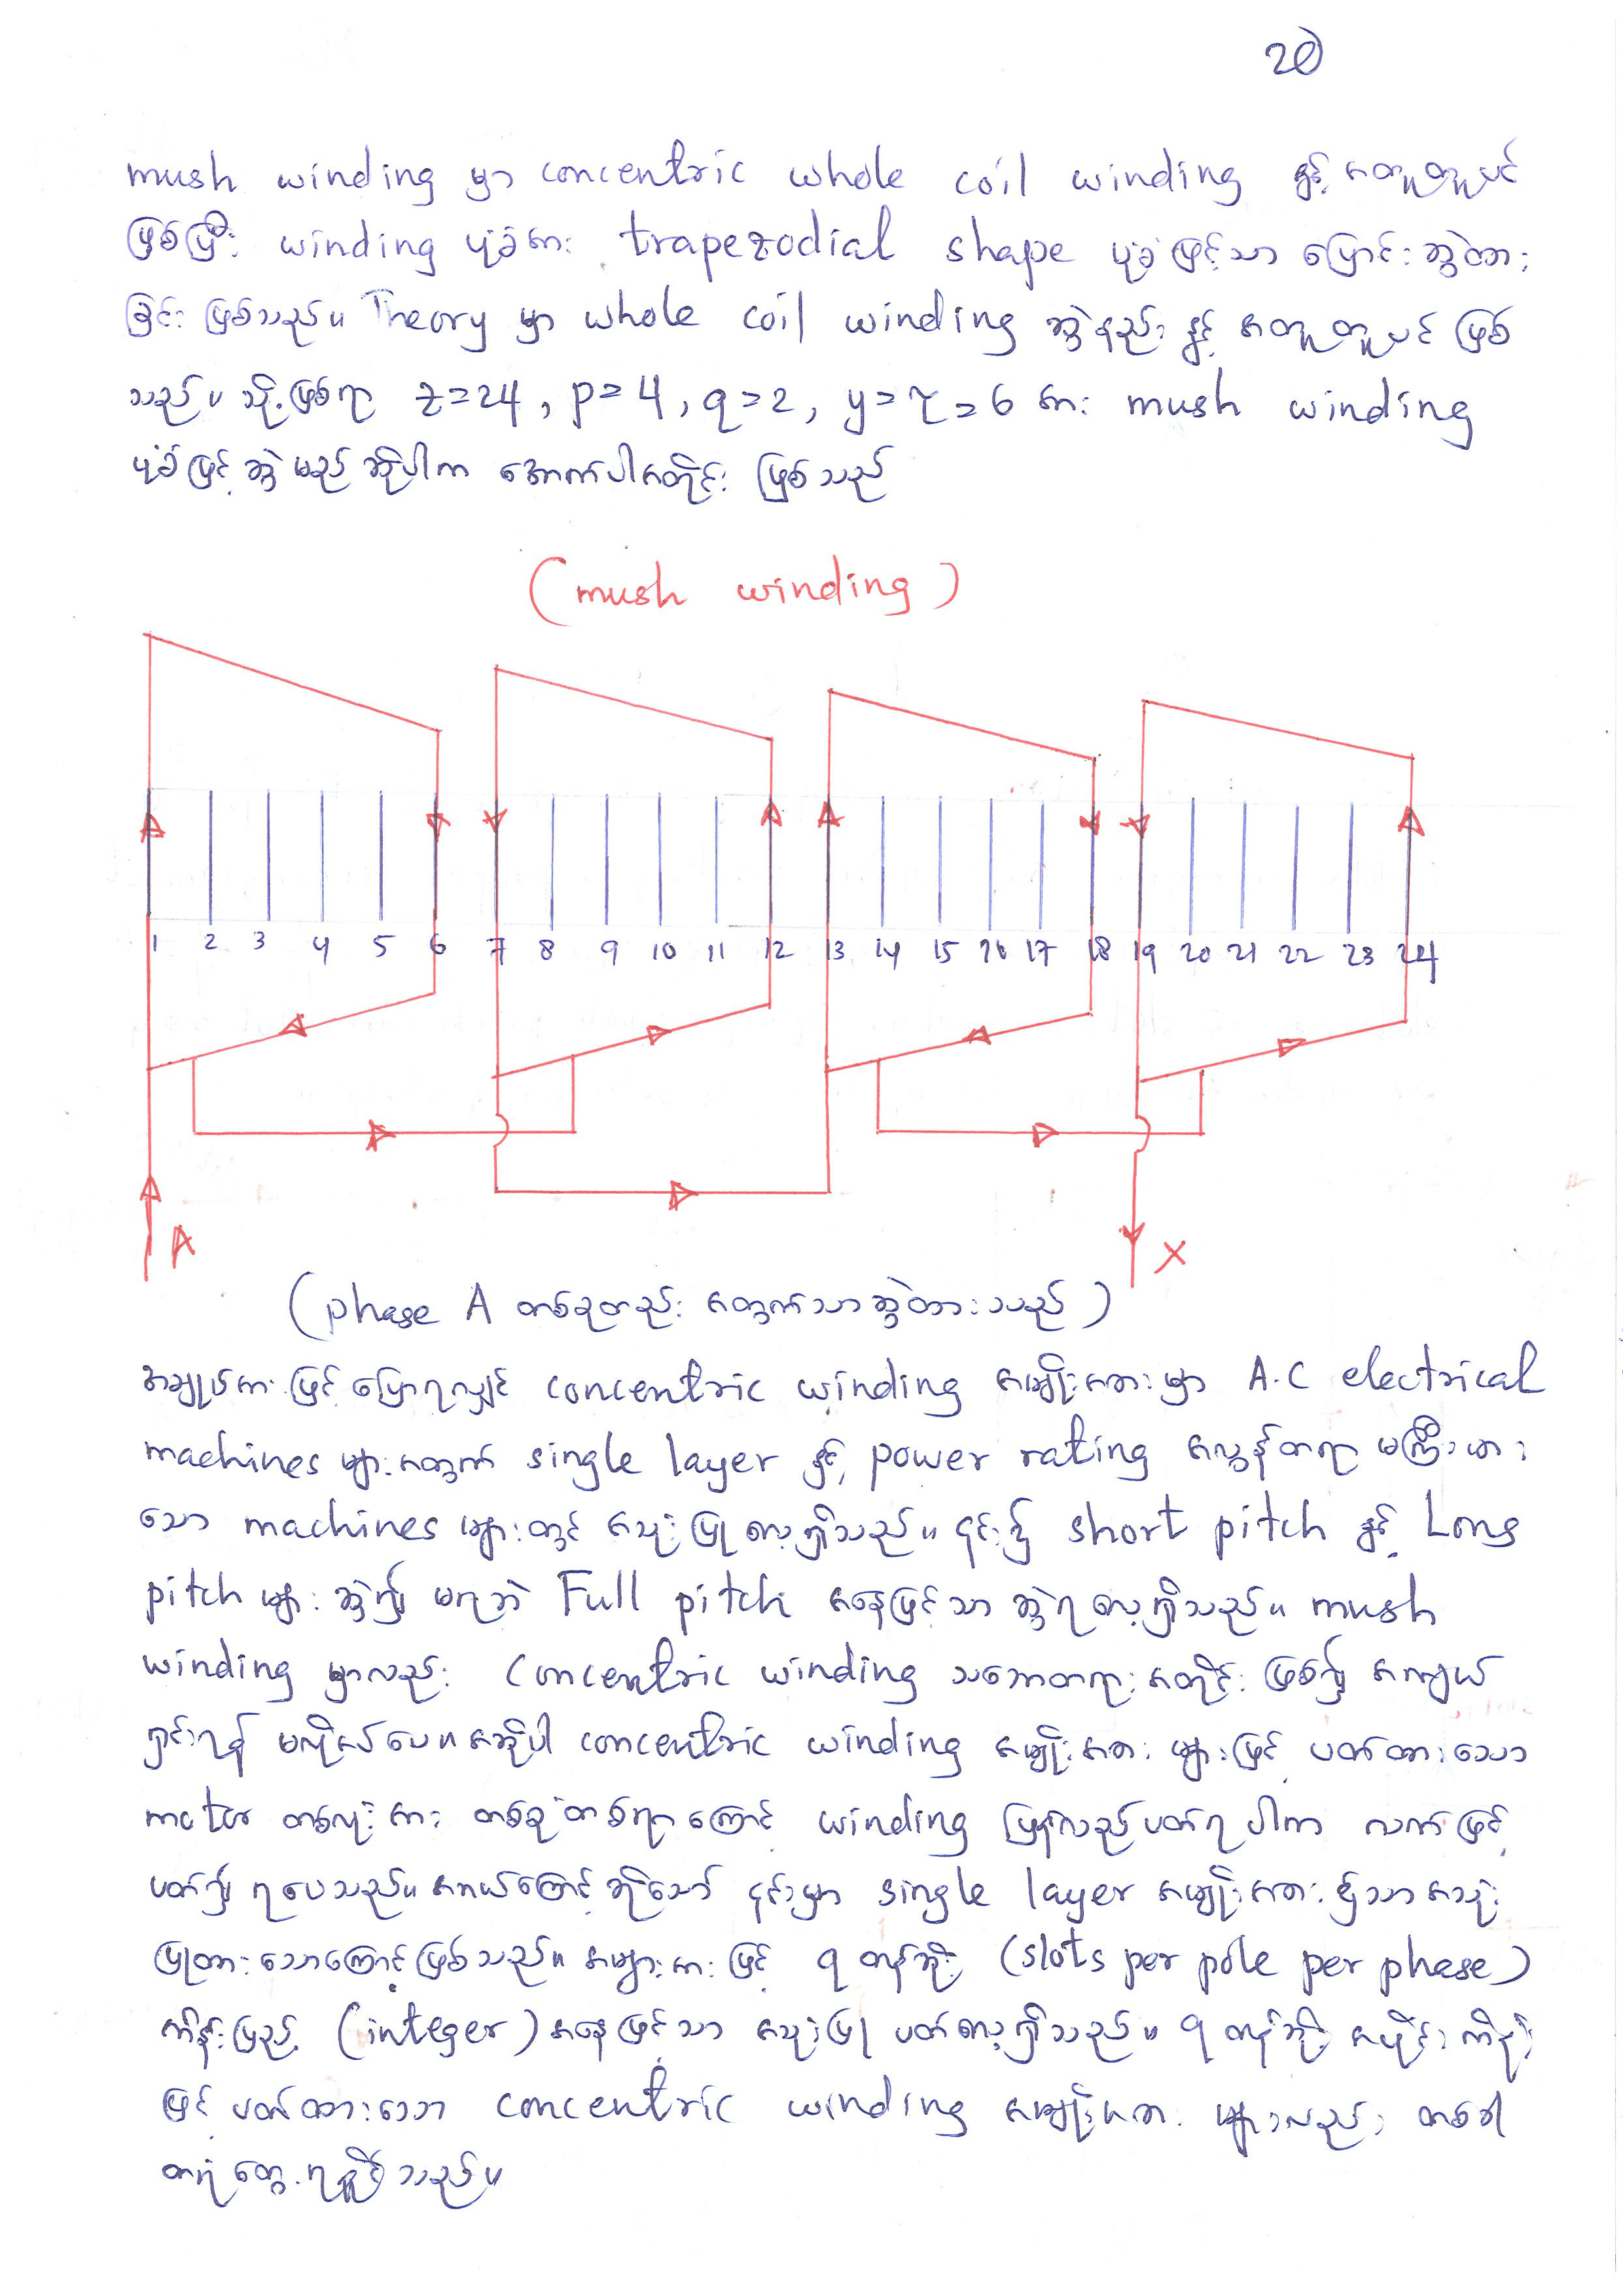 20
mush winding မှာ concentric whole coil winding နှင့် အတူတူပင်
ဖြစ်ပြီး winding ပုံစံအား trapezodial shape ပုံစံဖြင့်သာ ပြောင်းဆွဲထား
ခြင်း ဖြစ်သည်။ Theory မှာ whole coil winding ဆွဲနည်း နှင့် အတူတူပင် ဖြစ်
သည်။ သို့ဖြစ်ရာ z=24, p=4, q=2, y=τ=6 အား mush winding
ပုံစံဖြင့် ဆွဲမည် ဆိုပါက အောက်ပါအတိုင်း ဖြစ်သည်
(mush winding)
1 2 3 4 5 6 7 8 9 10 11 12 13 14 15 16 17 18 19 20 21 22 23 24
A X
(phase A တစ်ခုတည်း အတွက်သာဆွဲထားသည်)
အချုပ်အားဖြင့် ပြောရလျှင် concentric winding အမျိုးအစားမှာ A.C electrical
machines များအတွက် single layer နှင့် power rating အလွန်တရာ မကြီးမား
သော machines များတွင် အသုံးပြုလေ့ရှိသည်။ ၎င်း၌ short pitch နှင့် Long
pitch များ ဆွဲ၍ မရဘဲ Full pitch အနေဖြင့်သာ ဆွဲရလေ့ရှိသည်။ mush
winding မှာလည်း Concentric winding သဘောတရားအတိုင်း ဖြစ်၍ အကျယ်
ရှင်းရန် မလိုအပ်ပေ။ အဆိုပါ concentric winding အမျိုးအစား များဖြင့် ပတ်ထားသော
motor တစ်လုံးအား တစ်စုံတစ်ရာကြောင့် winding ပြန်လည်ပတ်ရပါက လက်ဖြင့်
ပတ်၍ ရပေသည်။ အဘယ်ကြောင့်ဆိုသော် ၎င်းမှာ single layer အမျိုးအစား၌သာ အသုံး
ပြုထားသောကြောင့်ဖြစ်သည်။ အများအားဖြင့် q တန်ဘိုး (slots per pole per phase)
ကိန်းပြည့် (integer) အနေဖြင့်သာ အသုံးပြု ပတ်လေ့ရှိသည်။ q တန်ဘိုး အပိုင်းကိန်း
ဖြင့် ပတ်ထားသော concentric winding အမျိုးအစား များလည်း တစ်ခါ
တရံ တွေ့ရရှိနိုင်သည်။